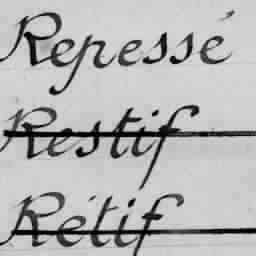 Repessé
Restif
Rétif